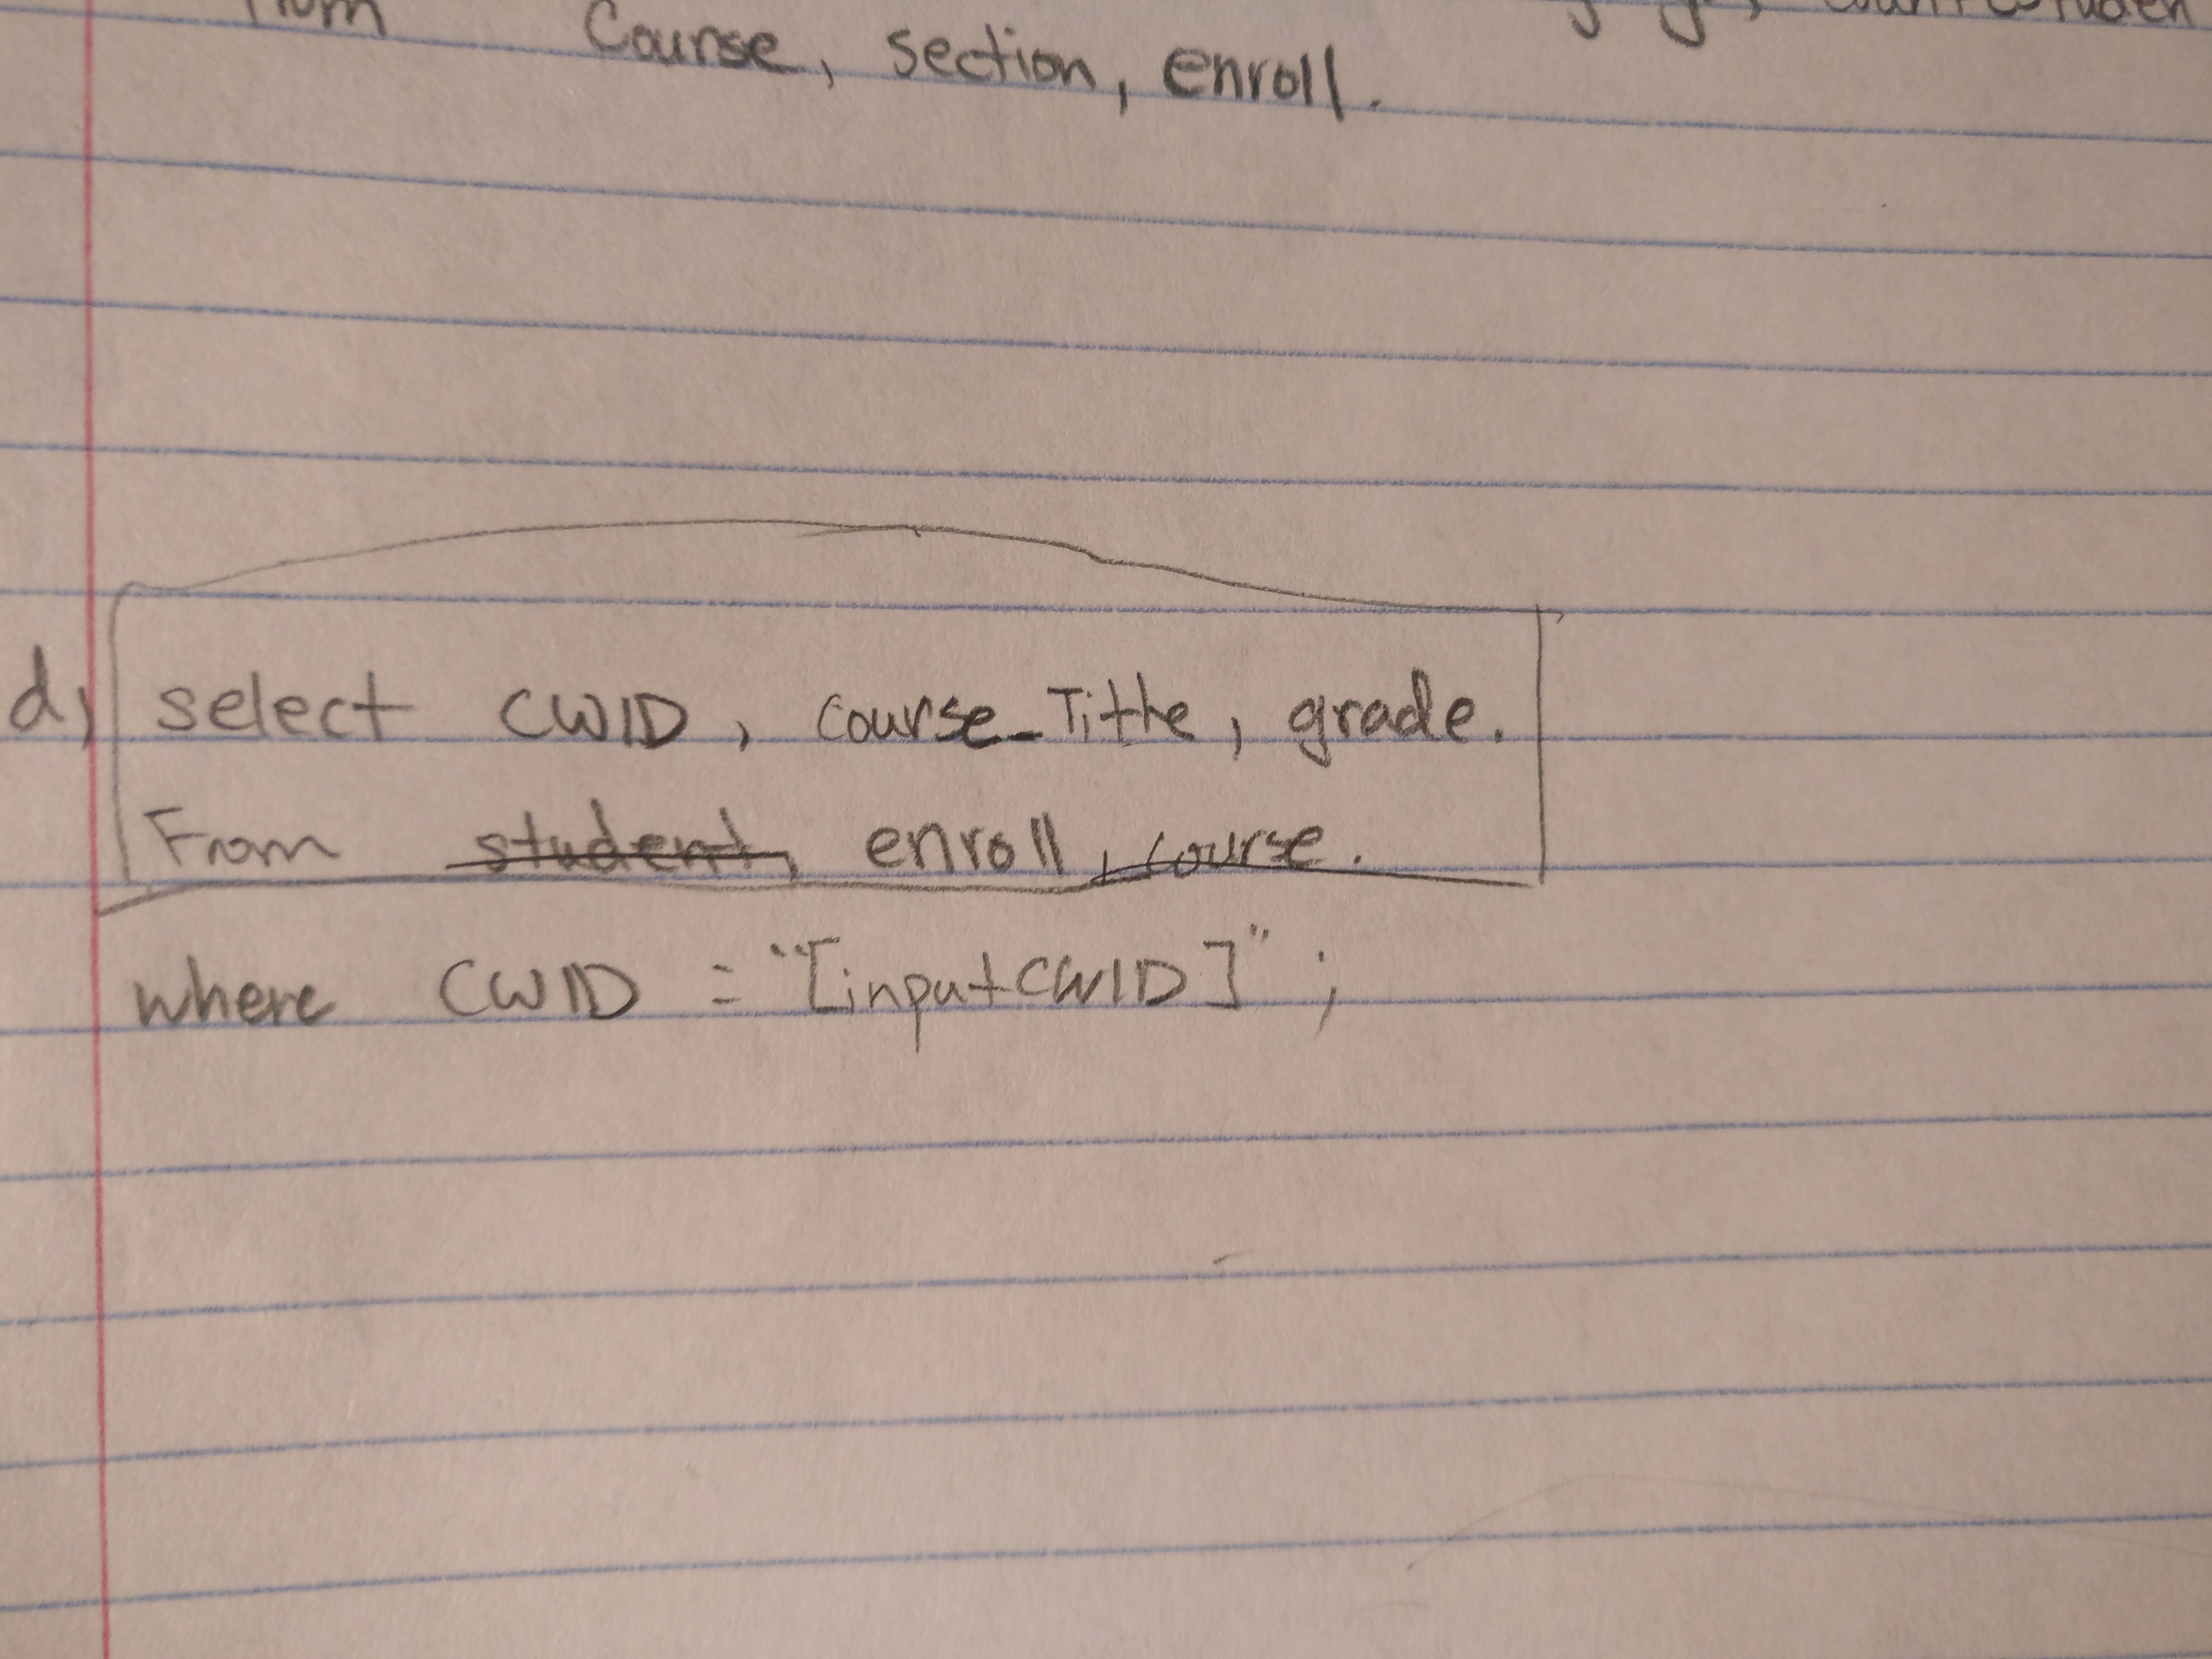 from Course, section, enroll.
d) select CWID, course_Title, grade.
From student, enroll, course.
where CWID = "[inputCWID]";